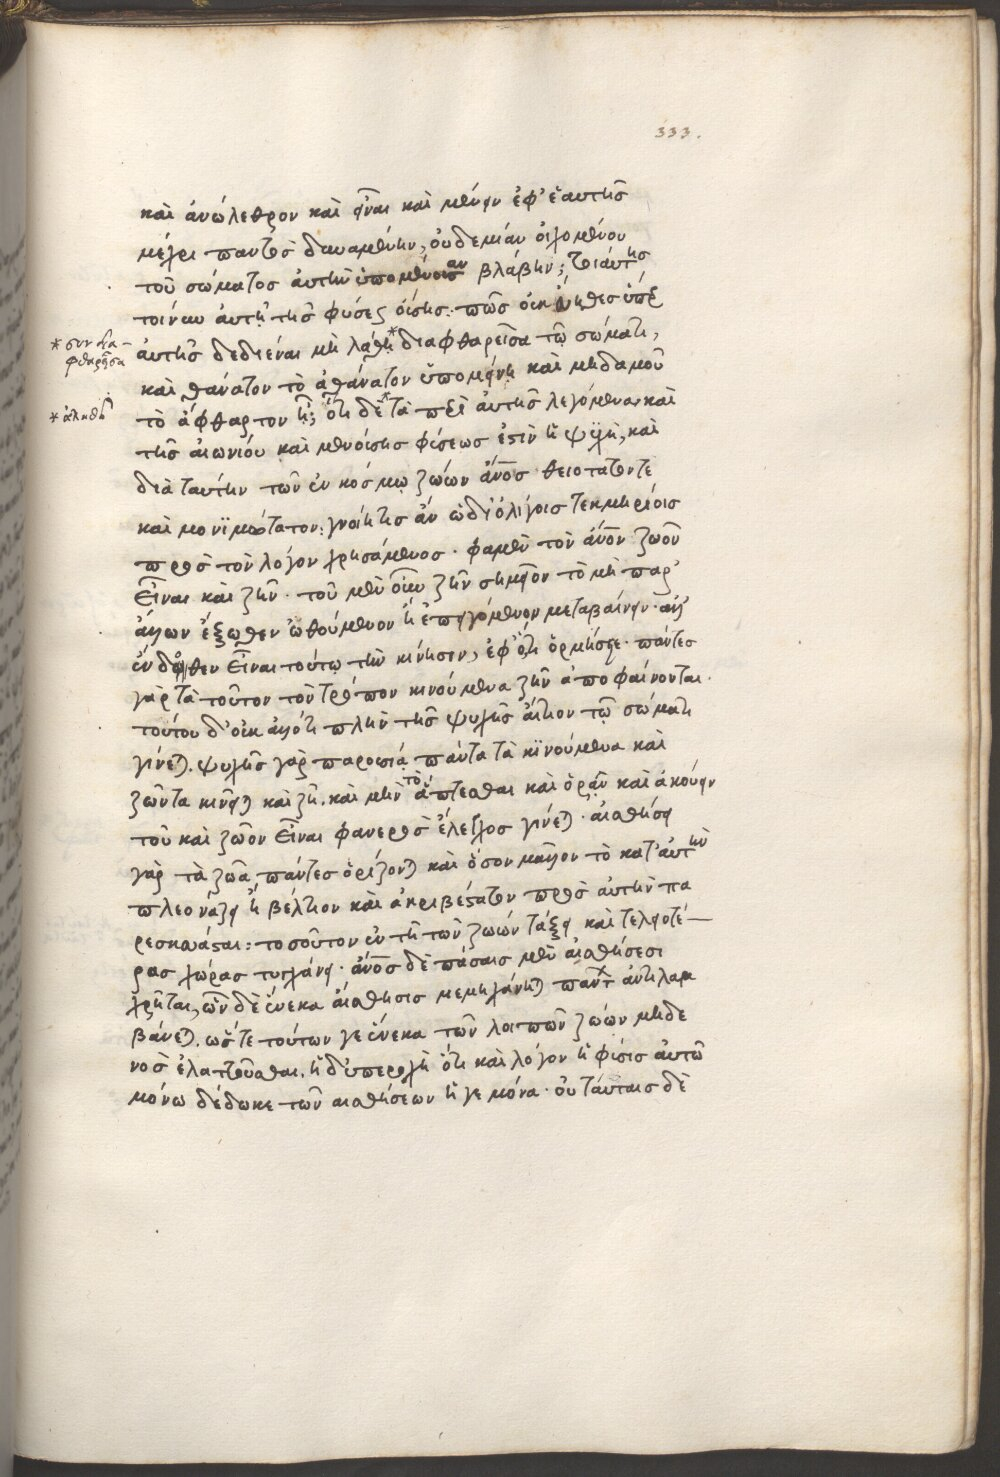 333.
καὶ ἀνώλεθρον καὶ εἶναι καὶ μένειν ἐφ' ἑαυτῆς
μέχρι παντὸς δυναμένην, οὐδεμίαν οἰχομένου
τοῦ σώματος αὐτὴν ὑπομένουσαν βλάβην; τοιάυτης
τοίνυν ἀυτῇ τῆς φύσεως οὔσης· πῶς οὐκ ὑπὲρ
* συνδια-
φθαρεῖσα
ἀυτῆς δεδιέναι μὴ λάθῃ * διαφθαρεῖσα τῷ σώματι,
καὶ θάνατον τὸ ἀθάνατον ὑπομείνῃ καὶ μηδαμοῦ
* ἀληθῆ
τὸ ἄφθαρτον ᾖ; ὅτι δὲ * τὰ περὶ ἀυτῆς λεγόμενα, καὶ
τῆς αἰωνίου καὶ μενούσης φύσεως ἐστὶν ἡ ψυχὴ, καὶ
διὰ ταύτην τῶν ἐν κόσμῳ ζώων ἄνος θειοτατόντε
καὶ μονϊμώτατον, γνοίη τις ἂν ὡδὶ ὀλίγοις τεκμηρίοις
πρὸς τὸν λόγον χρησάμενος. φαμὲν τὸν ἄνον ζῶον
εἶναι καὶ ζῆν. τοῦ μὲν οὖν ζῆν σημεῖον τὸ μὴ παρ'
ἄλλων ἔξωθεν ὠθούμενον ἢ ἐπειγόμενον μεταβαίνειν· ἀλλ'
ἔνδοθεν εἶναι τούτῳ τὴν κίνησιν, ἐφ' ὅτι ὁρμήσειε· πάντες
γὰρ τὰ τοῦτον τὸν τρόπον κινούμενα ζῆν ἀποφαίνονται.
τούτου δ' οὐκ ἄλλό τι πλὴν τῆς ψυχῆς ἄιτιον τῷ σώματι
γίνεται. ψυχῆς γὰρ παρουσίᾳ πάντα τὰ κϊνούμενα καὶ
ζῶντα κινεῖται καὶ ζῇ. καὶ μὴν τὸ ἅπτεσθαι καὶ ὁρᾷν καὶ ἀκούειν
τοῦ καὶ ζῶον εἶναι φανερὸς ἔλεγχος γίνεται. ἀισθήσει
γὰρ τὰ ζῶα πάντες ὁρίζονται καὶ ὅσον μᾶλλον τὸ κατ' ἀυτὴν
πλεονάζει ἢ βέλτιον καὶ ἀκριβέστατον πρὸς ἀυτὴν πα
ρεσκευάσται: τοσοῦτον ἐν τῇ τῶν ζώων τάξει καὶ τελεοτέ-
ρας χώρας τυγχάνει. ἄνος δὲ πάσαις μὲν ἀισθήσεσι
χρῆται, ὧν δὲ ἕνεκα ἀίσθησις μεμηχάνηται πάντ ἀντιλαμ
βάνεται. ὥστε τούτων γε ἕνεκα τῶν λοιπῶν ζώων μηδε
νὸς ἐλαττοῦσθαι. ἡ δ' ὑπεροχὴ ὅτι καὶ λόγον ἡ φύσις ἀυτῷ
μόνω δέδωκε τῶν αισθήσεων ἡγεμόνα. οὐ τάυταις δὲ